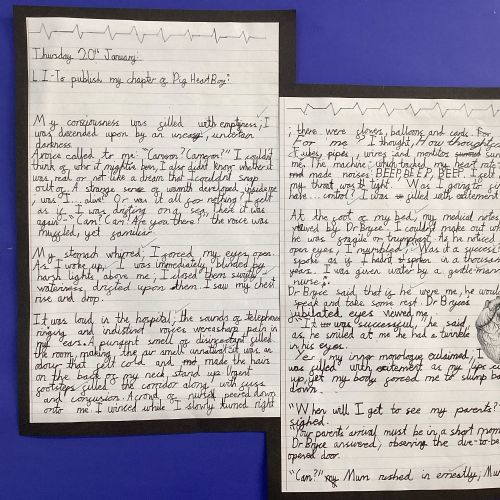 Thursday 20th January.
L I - To publish my chapter of Pig Heart Boy.
My consciousness was filled with emptyness, I
was descended upon by an uneasy, uncertain
darkness.
A voice called to me: "Cameron? Cameron?" I couldn't
think of who it might've been, I also didn't know whether it
was real or not like a dream that I couldn't snap
out of. A strange sense of warmth developed inside me
; was I... alive? Or was it all for nothing? I felt
as if I was drifting on a sea, then it was
again "Cam! Cam! Are you there?" the voice was
muggled, yet familiar.
My stomach whirred, I forced my eyes open.
As I woke up, I was immediately blinded by
harsh lights above me, I closed them swiftly
wateriness dripped upon them. I saw my chest
rise and drop.
It was loud in the hospital; the sounds of telephones
ringing and indistinct voices were a sharp pain in
my ears. A pungent smell of disinfectant filled
the room, making the air smell unnatural it was an
odour that felt cold and made the hairs
on the back of my neck stand up. Urgent
footsteps filled the corridor along with fuss
and confusion. A crowd of nurses peered down
onto me. I winced while I slowly turned right
; there were flowers, balloons and cards. For
For me I thought, How thoughtful
Tubes, pipes, wires and monitors
me. The machine which tracked my heart rate
made noises: BEEP, BEEP, BEEP. I felt
my throat was tight. Was I going
have... control? I was filled with excitement
At the foot of my bed, my medical notes
viewed by Dr Bryce. I couldn't make out wh
he was fragile or triumphant. He noticed
open eyes, I murmured, "Was it a success?"
spoke as if I hadn't spoken in a thousand
years. I was given water by a gentle-mann
nurse.
Dr Bryce said, that is he were me, he would
speak and take some rest. Dr Bryces
jubilated eyes viewed me.
"It was successful," he said
as he smiled at me he had a twinkle
in his eyes.
Yes! my inner monologue exclaimed, I
was filled with excitement as my lips cu
up, yet my body forced me to slump ba
down.
"When will I get to see my parents?"
sighed.
"Your parents' arrival must be in a short mom
Dr Bryce answered, observing the due-to-be
opened door.
"Cam?" my Mum rushed in earnestly, Mum